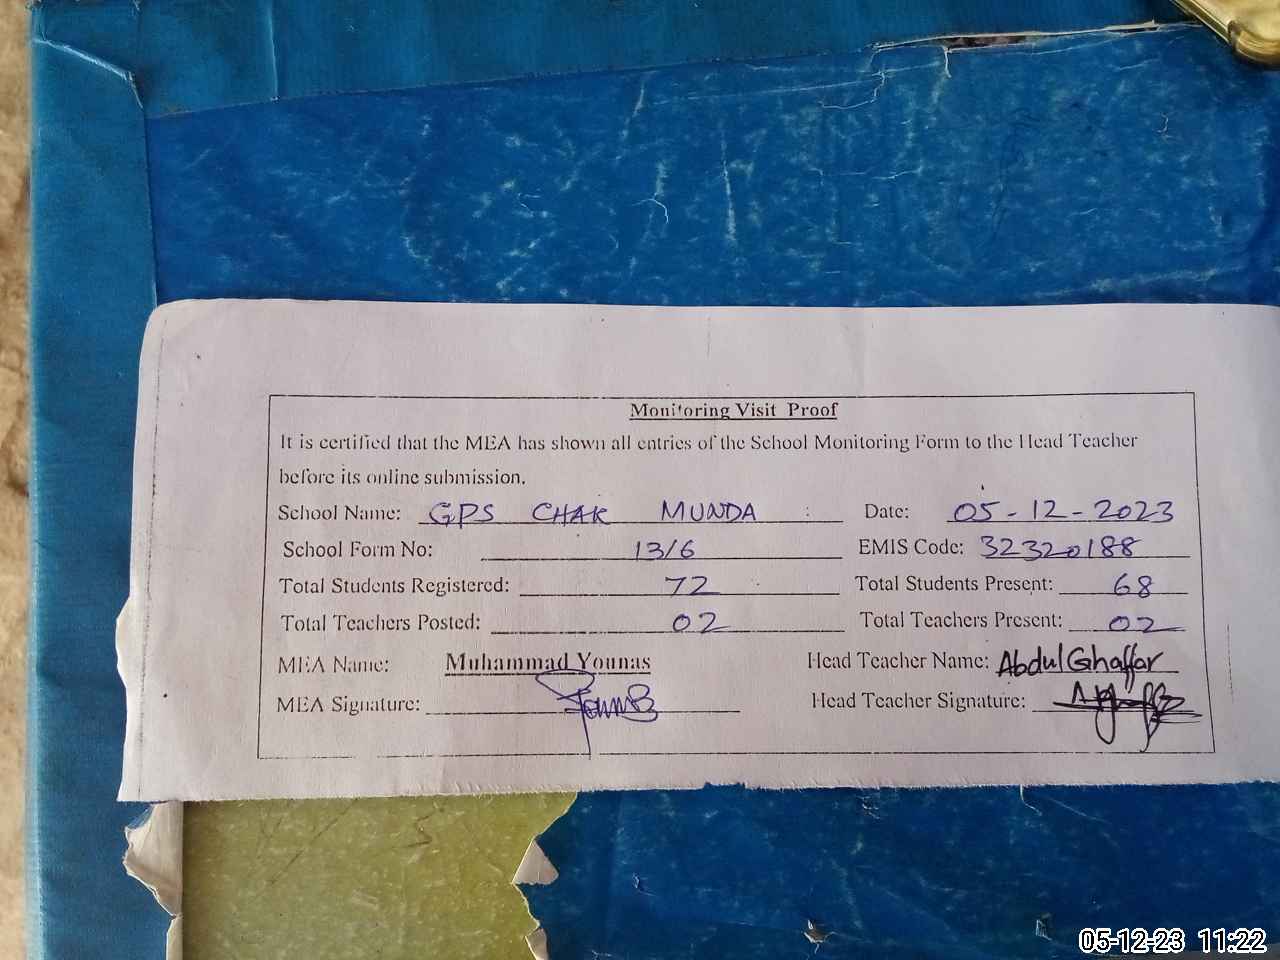 Monitoring Visit Proof
It is certified that the MEA has shown all entries of the School Monitoring Form to the Head Teacher
before its online submission.
School Name: GPS CHAK MUNDA Date: 05-12-2023
School Form No: 13/6 EMIS Code: 32320188
Total Students Registered: 72 Total Students Present: 68
Total Teachers Posted: 02 Total Teachers Present: 02
MEA Name: Muhammad Younas Head Teacher Name: Abdul Ghaffar
MEA Signature: Head Teacher Signature:
05-12-23 11:22